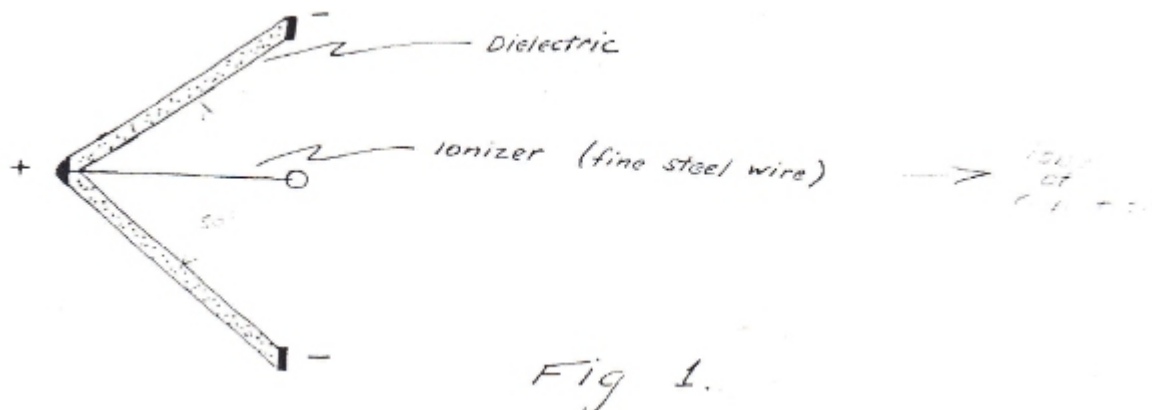 -
Dielectric
+
Ionizer (fine steel wire)
-
Fig 1.